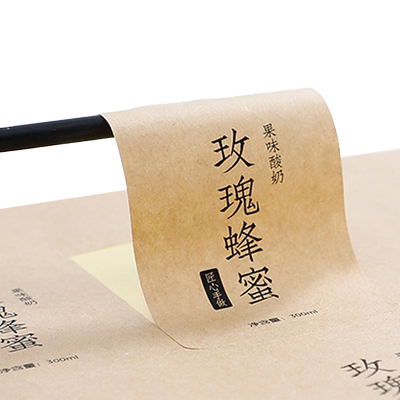 果味酸奶
玫瑰蜂蜜
匠心手做
净含量：300ml
果味酸奶
蜂蜜
300ml
玫瑰